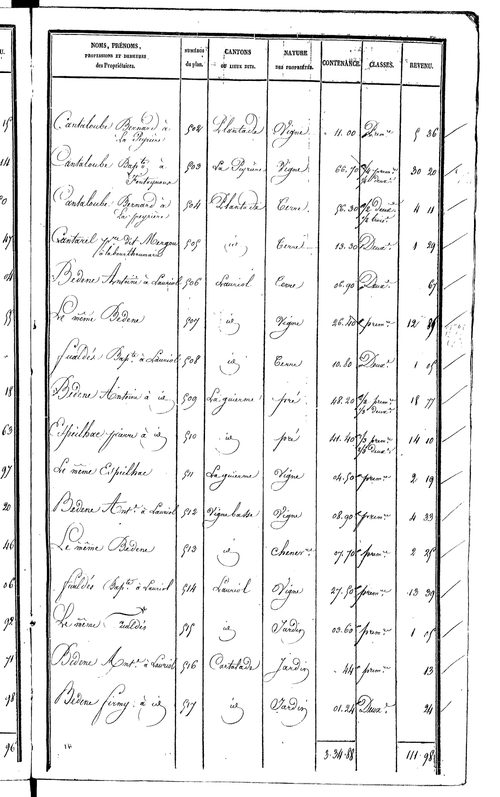 NOMS, PRÉNOMS, PROFESSIONS ET DEMEURES des Propriétaires. NUMÉROS du plan. CANTONS OU LIEUX DITS. NATURE DES PROPRIÉTÉS. CONTENANCE. CLASSES. REVENU.
Cantaloube Bernard à La Peyrière 502 Plantade Vigne 11.00 Prem.re 5 36
Cantaloube Bap.te à 503 La Peyrière Vigne 66.70 30 20
Cantaloube Bernard à La peyrière 504 Plantade Terre 56.30 4 11
Cantarel dit 505 id Terre 13.30 Deux.e 1 29
Bedene Antoine à Lauriol 506 Lauriol Terre 06.90 Deux.e 67
Le même Bedene 507 id Vigne 26.40 prem.re 12
fualdés Bap.te à Lauriol 508 id Terre 10.80 Deux.e 1 05
Bedene Antoine à id 509 La guienne pré 48.20 1/2 prem.re 1/2 deux.e 18 77
Espeilhac pierre à id 510 id pré 41.40 prem.re deux.e 14 10
Le même Espeilhac 511 La guienne Vigne 04.50 prem.re 2 19
Bedene Ant.e à Lauriol 512 Vignebasse Vigne 08.90 prem.re 4 33
Le même Bedene 513 id chenev.re 07.70 prem.re 2 25
fualdés Bap.te à Lauriol 514 Lauriol Vigne 27.50 prem.re 13 39
Le même fualdés 515 id Jardin 03.60 prem.re 1 05
Bedene Ant.e à Lauriol 516 Cortalade Jardin 44 prem.re 13
Bedene à id 517 id Jardin 01.24 Deux.e 24
14 3.34.88 111 98